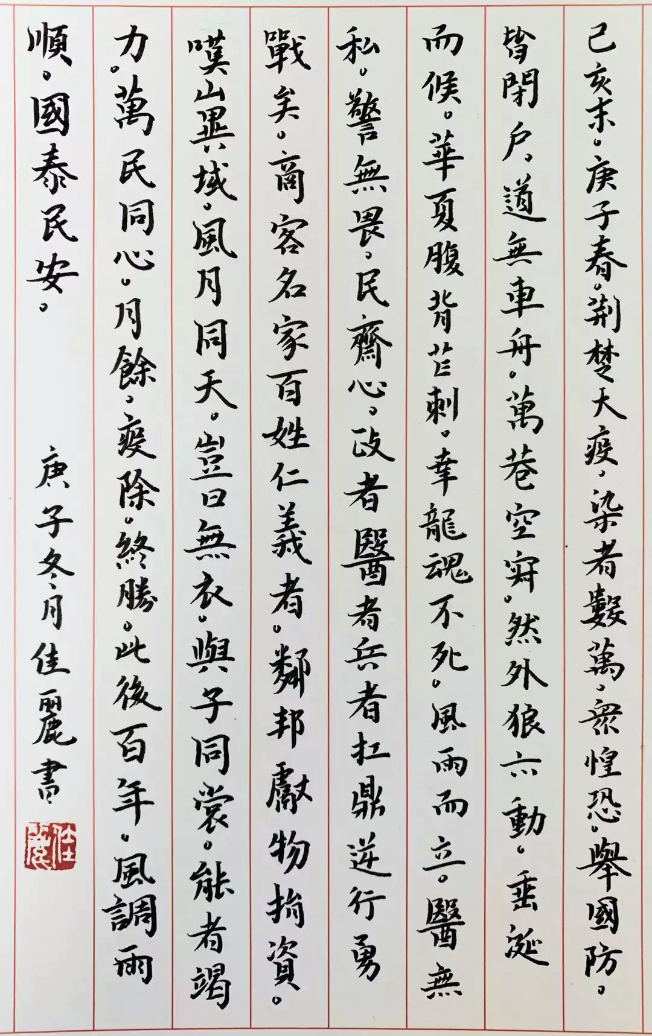 己亥末。庚子春。荆楚大疫，染者數萬，衆惶恐。舉國防。
皆閉户，道無車舟。萬巷空寂。然外狼亦動。垂涎
而候。華夏腹背芒刺。幸龍魂不死。風雨而立。醫無
私。警無畏，民齋心，政者醫者兵者扛鼎逆行勇
戰矣。商客名家百姓仁義者。鄰邦獻物捐資。
嘆山異域，風月同天。豈曰無衣。與子同裳。能者竭
力。萬民同心。月餘，疫除。終勝。此後百年。風調雨
順。國泰民安。
庚子冬月佳麗書
佳麗